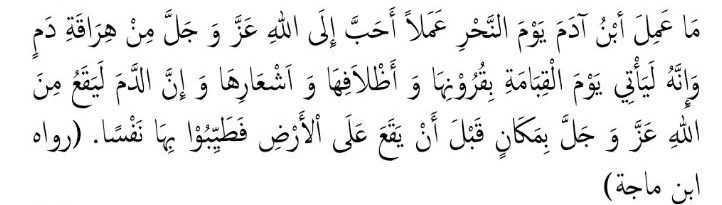 مَا عَمِلَ أبْنُ آدَمَ يَوْمَ النَّحْرِ عَمَلاً أَحَبَّ إِلَى اللهِ عَزَّ وَ جَلَّ مِنْ هِرَاقَةِ دَمٍ
وَإِنَّهُ لَيَأْتِي يَوْمَ الْقِيَامَةِ بِقُرُوْنِهَا وَ أَظْلاَفِهَا وَ اَشْعَارِهَا وَ إِنَّ الدَّمَ لَيَقَعُ مِنَ
اللهِ عَزَّ وَ جَلَّ بِمَكَانٍ قَبْلَ أَنْ يَقَعَ عَلَى ألأَرْضِ فَطَيِّبُوْا بِهَا نَفْسًا. (رواه
ابن ماجة)